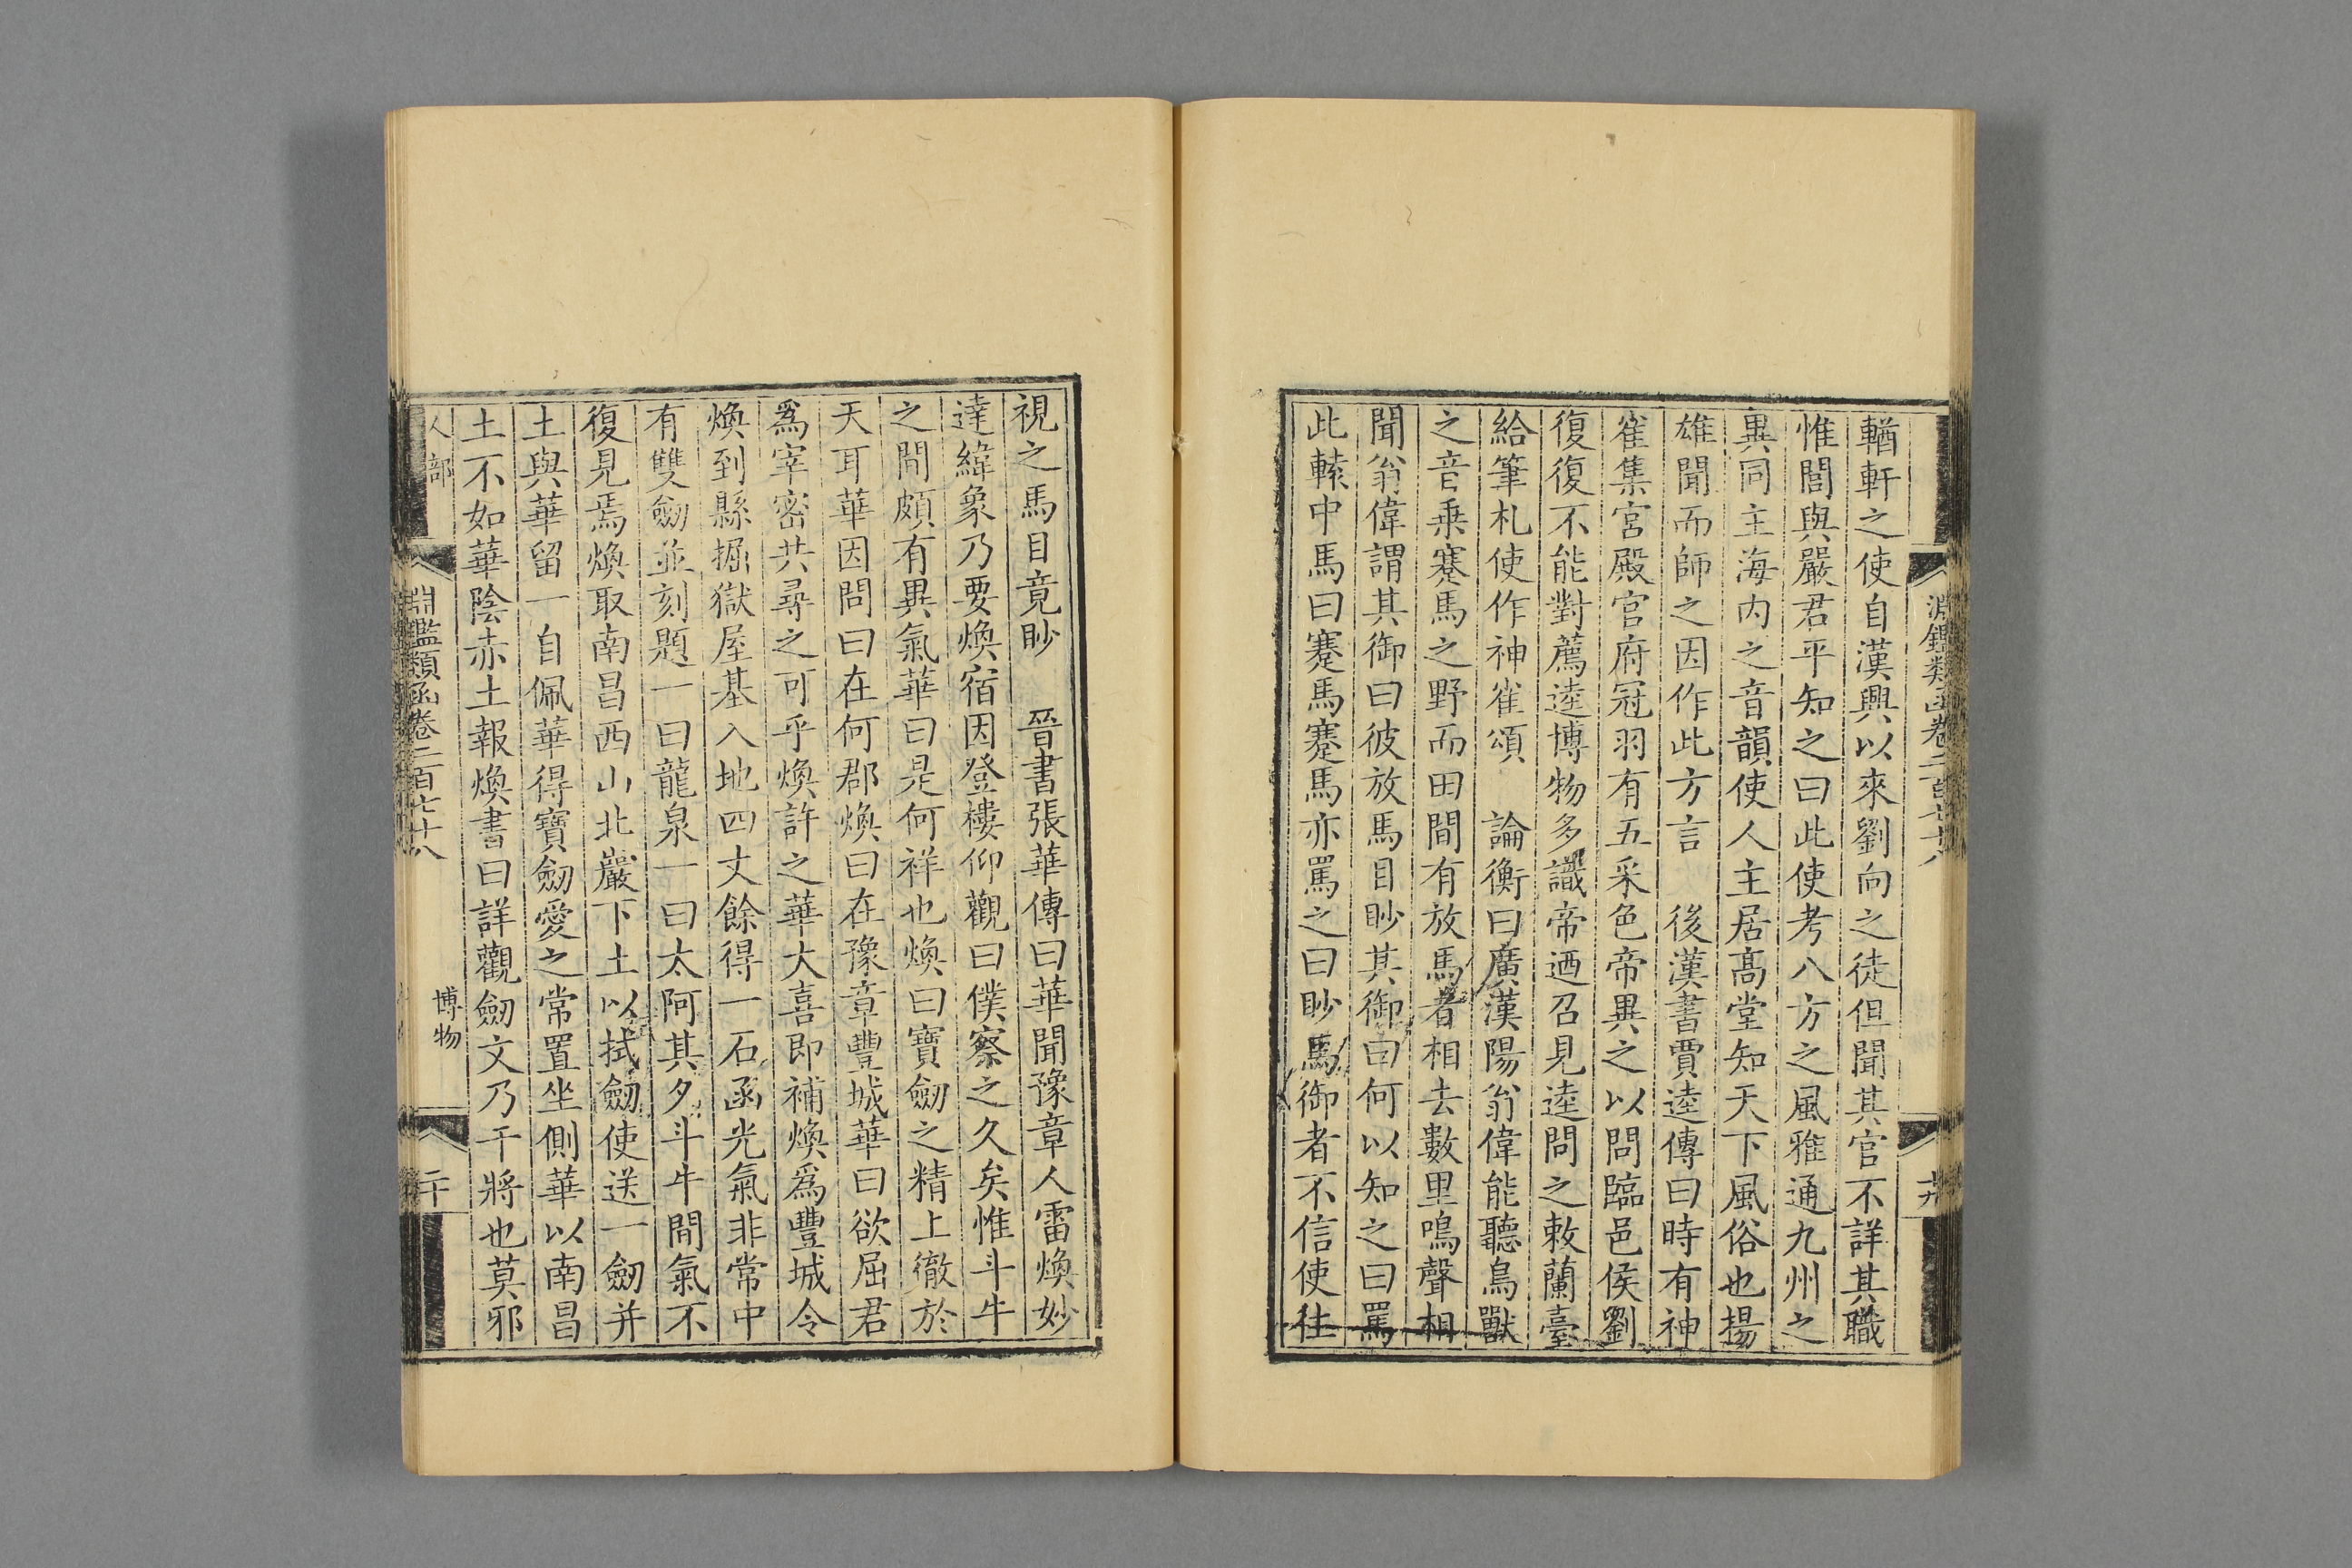 淵鑑類函卷二百七十八
輶軒之使自漢興以來劉向之徒但聞其官不詳其職
惟閭與嚴君平知之曰此使考八方之風雅通九州之
異同主海内之音韻使人主居高堂知天下風俗也揚
雄聞而師之因作此方言　後漢書賈逵傳曰時有神
雀集宮殿官府冠羽有五采色帝異之以問臨邑侯劉
復復不能對薦逵博物多識帝迺召見逵問之敕蘭臺
給筆札使作神雀頌　論衡曰廣漢陽翁偉能聽鳥獸
之音乗蹇馬之野而田間有放馬者相去數里鳴聲相
聞翁偉謂其御曰彼放馬目眇其御曰何以知之曰罵
此轅中馬曰蹇馬蹇馬亦罵之曰眇馬御者不信使往
視之馬目竟眇　晉書張華傳曰華聞豫章人雷煥妙
達緯象乃要煥宿因登樓仰觀曰僕察之久矣惟斗牛
之間頗有異氣華曰是何祥也煥曰寶劒之精上徹於
天耳華因問曰在何郡煥曰在豫章豐城華曰欲屈君
爲宰密共尋之可乎煥許之華大喜即補煥爲豐城令
煥到縣掘獄屋基入地四丈餘得一石函光氣非常中
有雙劒並刻題一曰龍泉一曰太阿其夕斗牛間氣不
復見焉煥取南昌西山北巖下土以拭劒使送一劒并
土與華留一自佩華得寶劒愛之常置坐側華以南昌
土不如華陰赤土報煥書曰詳觀劒文乃干將也莫邪
人部
淵鑑類函卷二百七十八
博物
二十